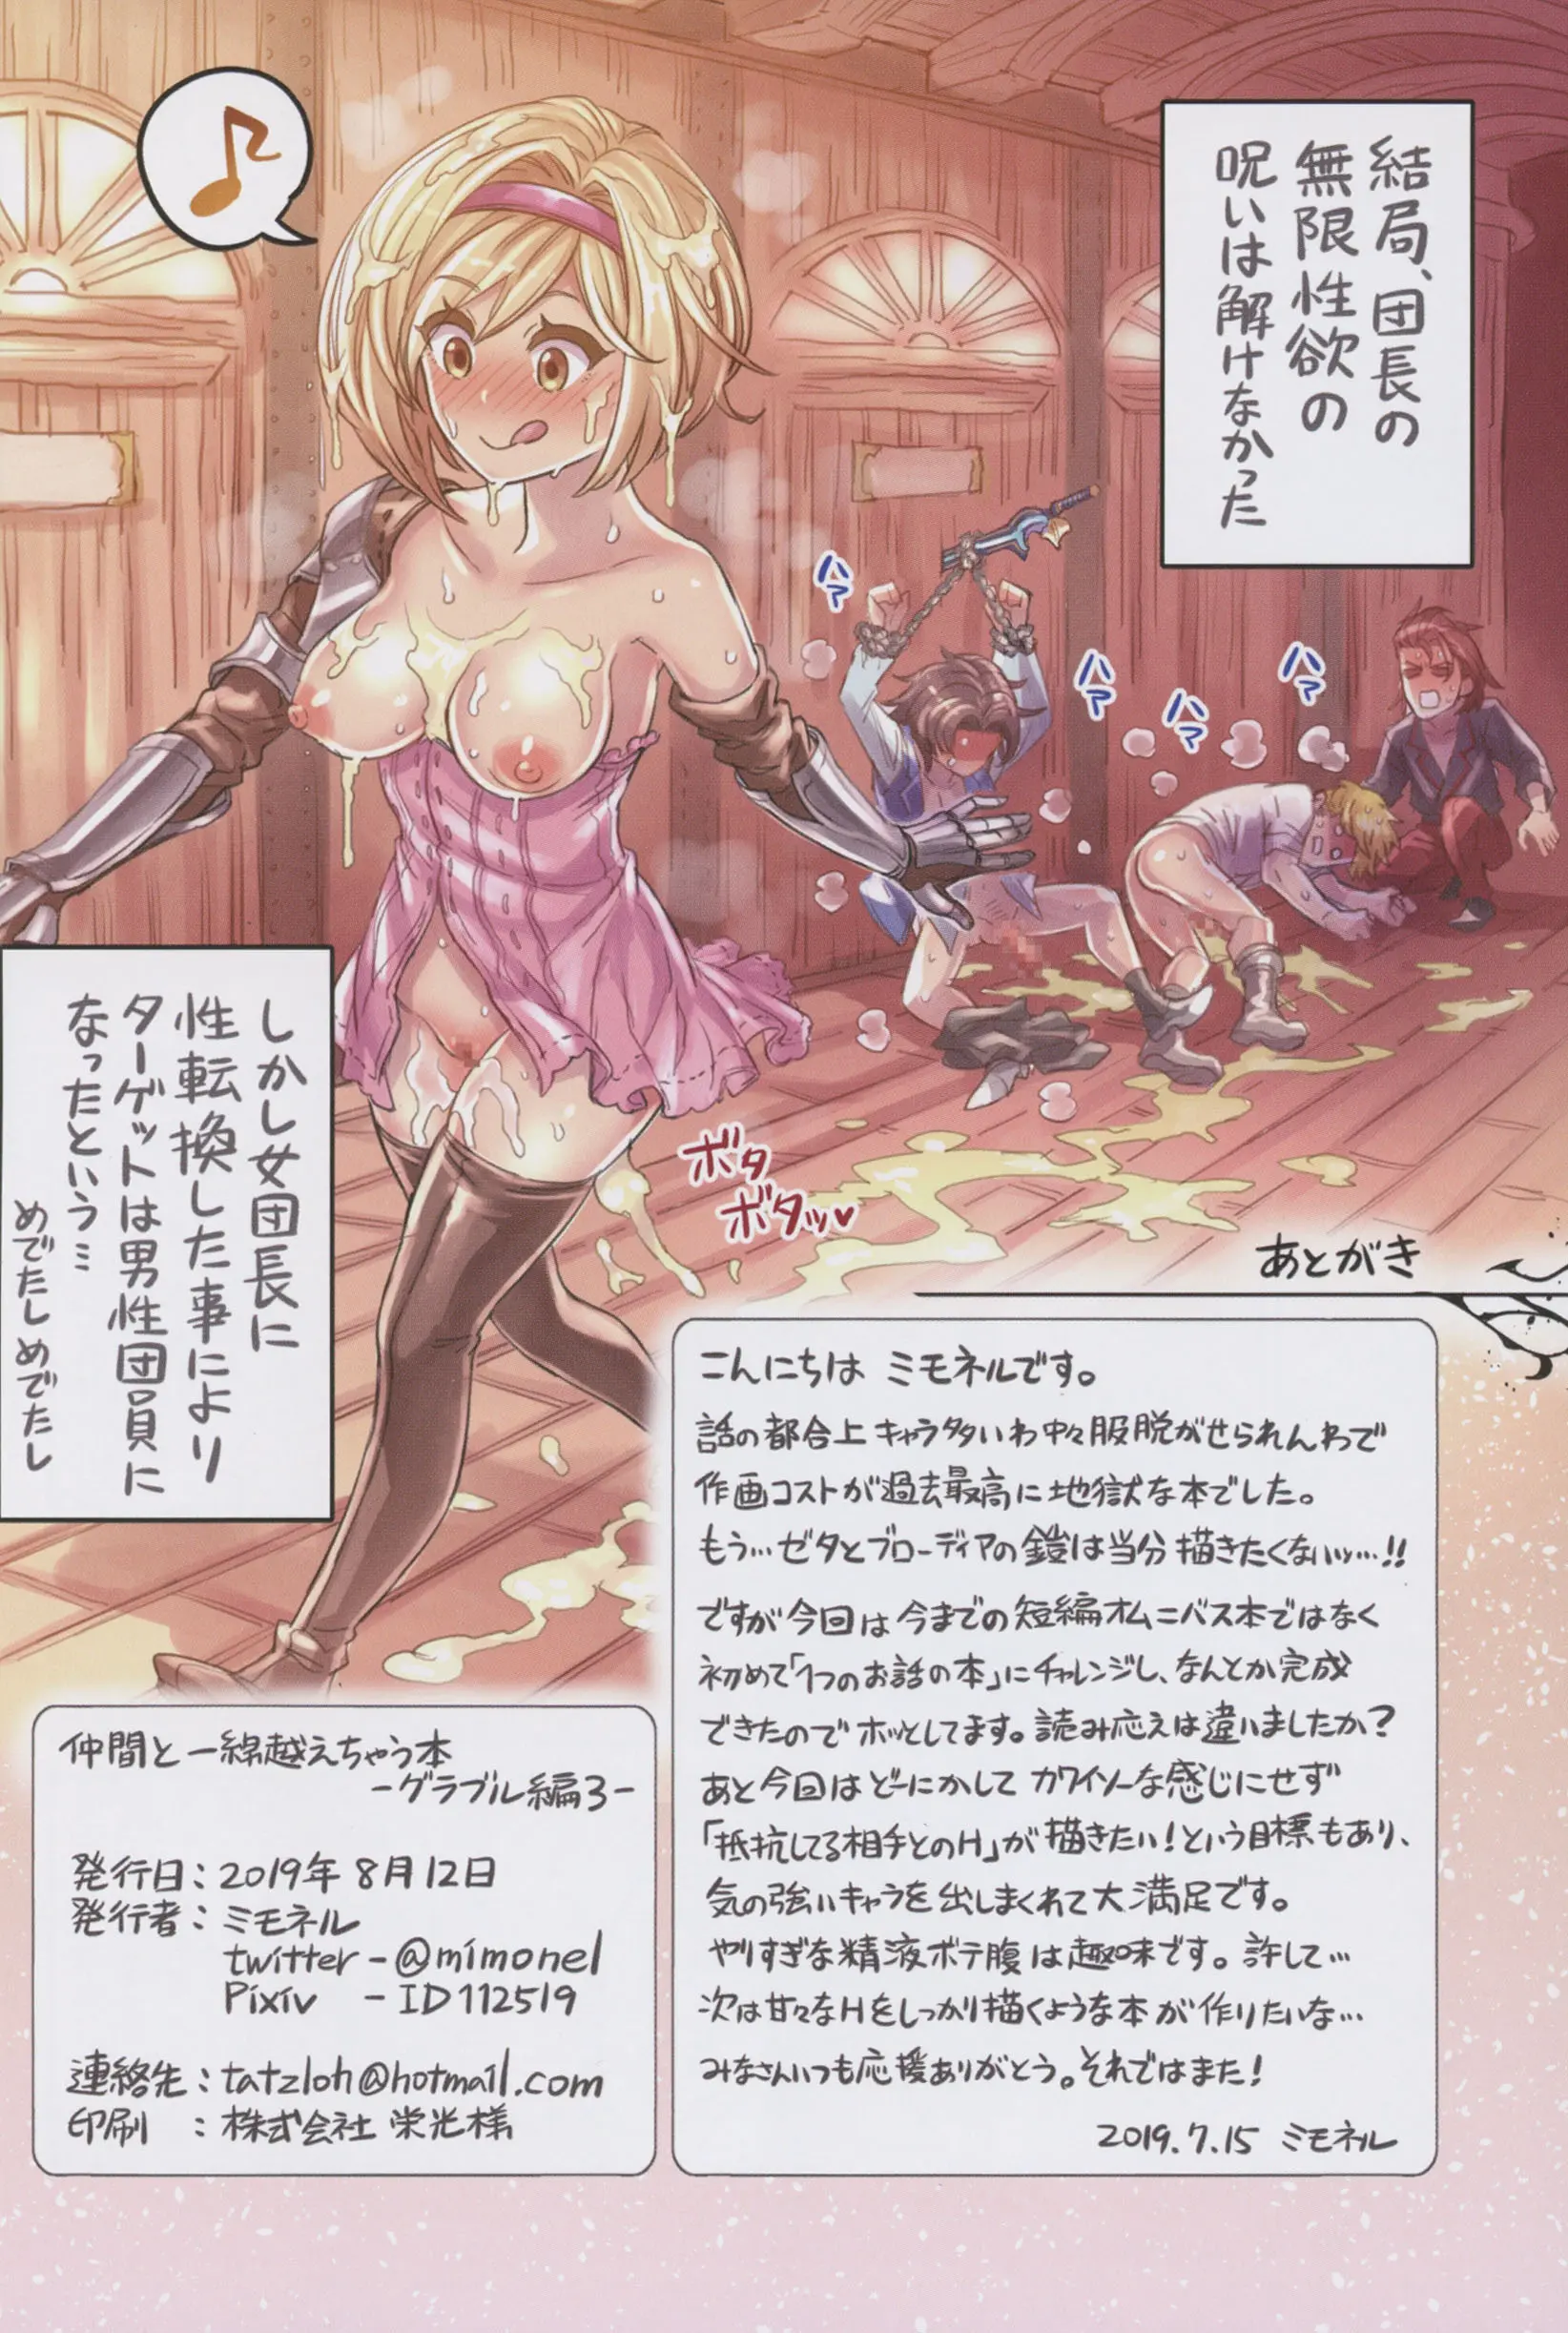 結局、団長の
無限性欲の
呪いは解けなかった
ハァ
ハァ
ハァ
ハァ
しかし女団長に
性転換した事により
ターゲットは男性団員に
なったという…
めでたしめでたし
ボタ
ボタッ♥
あとがき
こんにちは ミモネルです。
話の都合上キャラ多いわ中々服脱がせられんわで
作画コストが過去最高に地獄な本でした。
もう…ゼタとブローディアの鎧は当分描きたくないッ…!!
ですが今回は今までの短編オムニバス本ではなく
初めて「1つのお話の本」にチャレンジし、なんとか完成
できたのでホッとしてます。読み応えは違いましたか?
あと今回はどーにかしてカワイソーな感じにせず
「抵抗してる相手とのH」が描きたい!という目標もあり、
気の強いキャラを出しまくれて大満足です。
やりすぎな精液ボテ腹は趣味です。許して…
次は甘々なHをしっかり描くような本が作りたいな…
みなさんいつも応援ありがとう。それではまた!
2019.7.15 ミモネル
仲間と一線越えちゃう本
-グラブル編3-
発行日:2019年8月12日
発行者:ミモネル
twitter-@mimonel
Pixiv -ID112519
連絡先:tatzloh@hotmail.com
印刷 :株式会社 栄光様